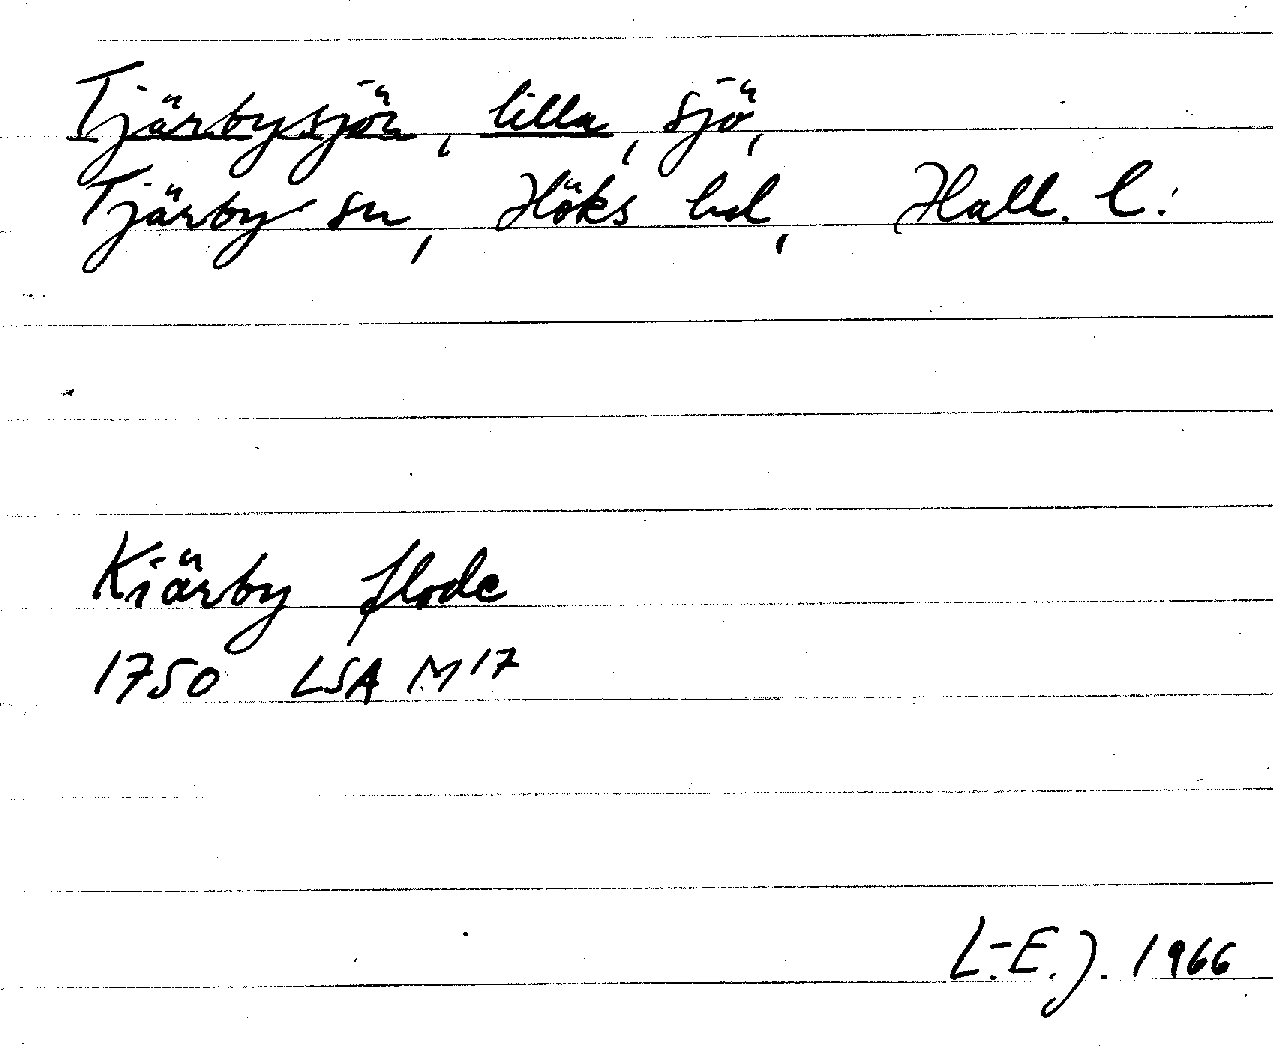 Tjärbysjön, lilla, sjö,
Tjärby sn, Höks hd, Hall. l.
Kiärby flode
1750 LSA M17
L.-E.J. 1966